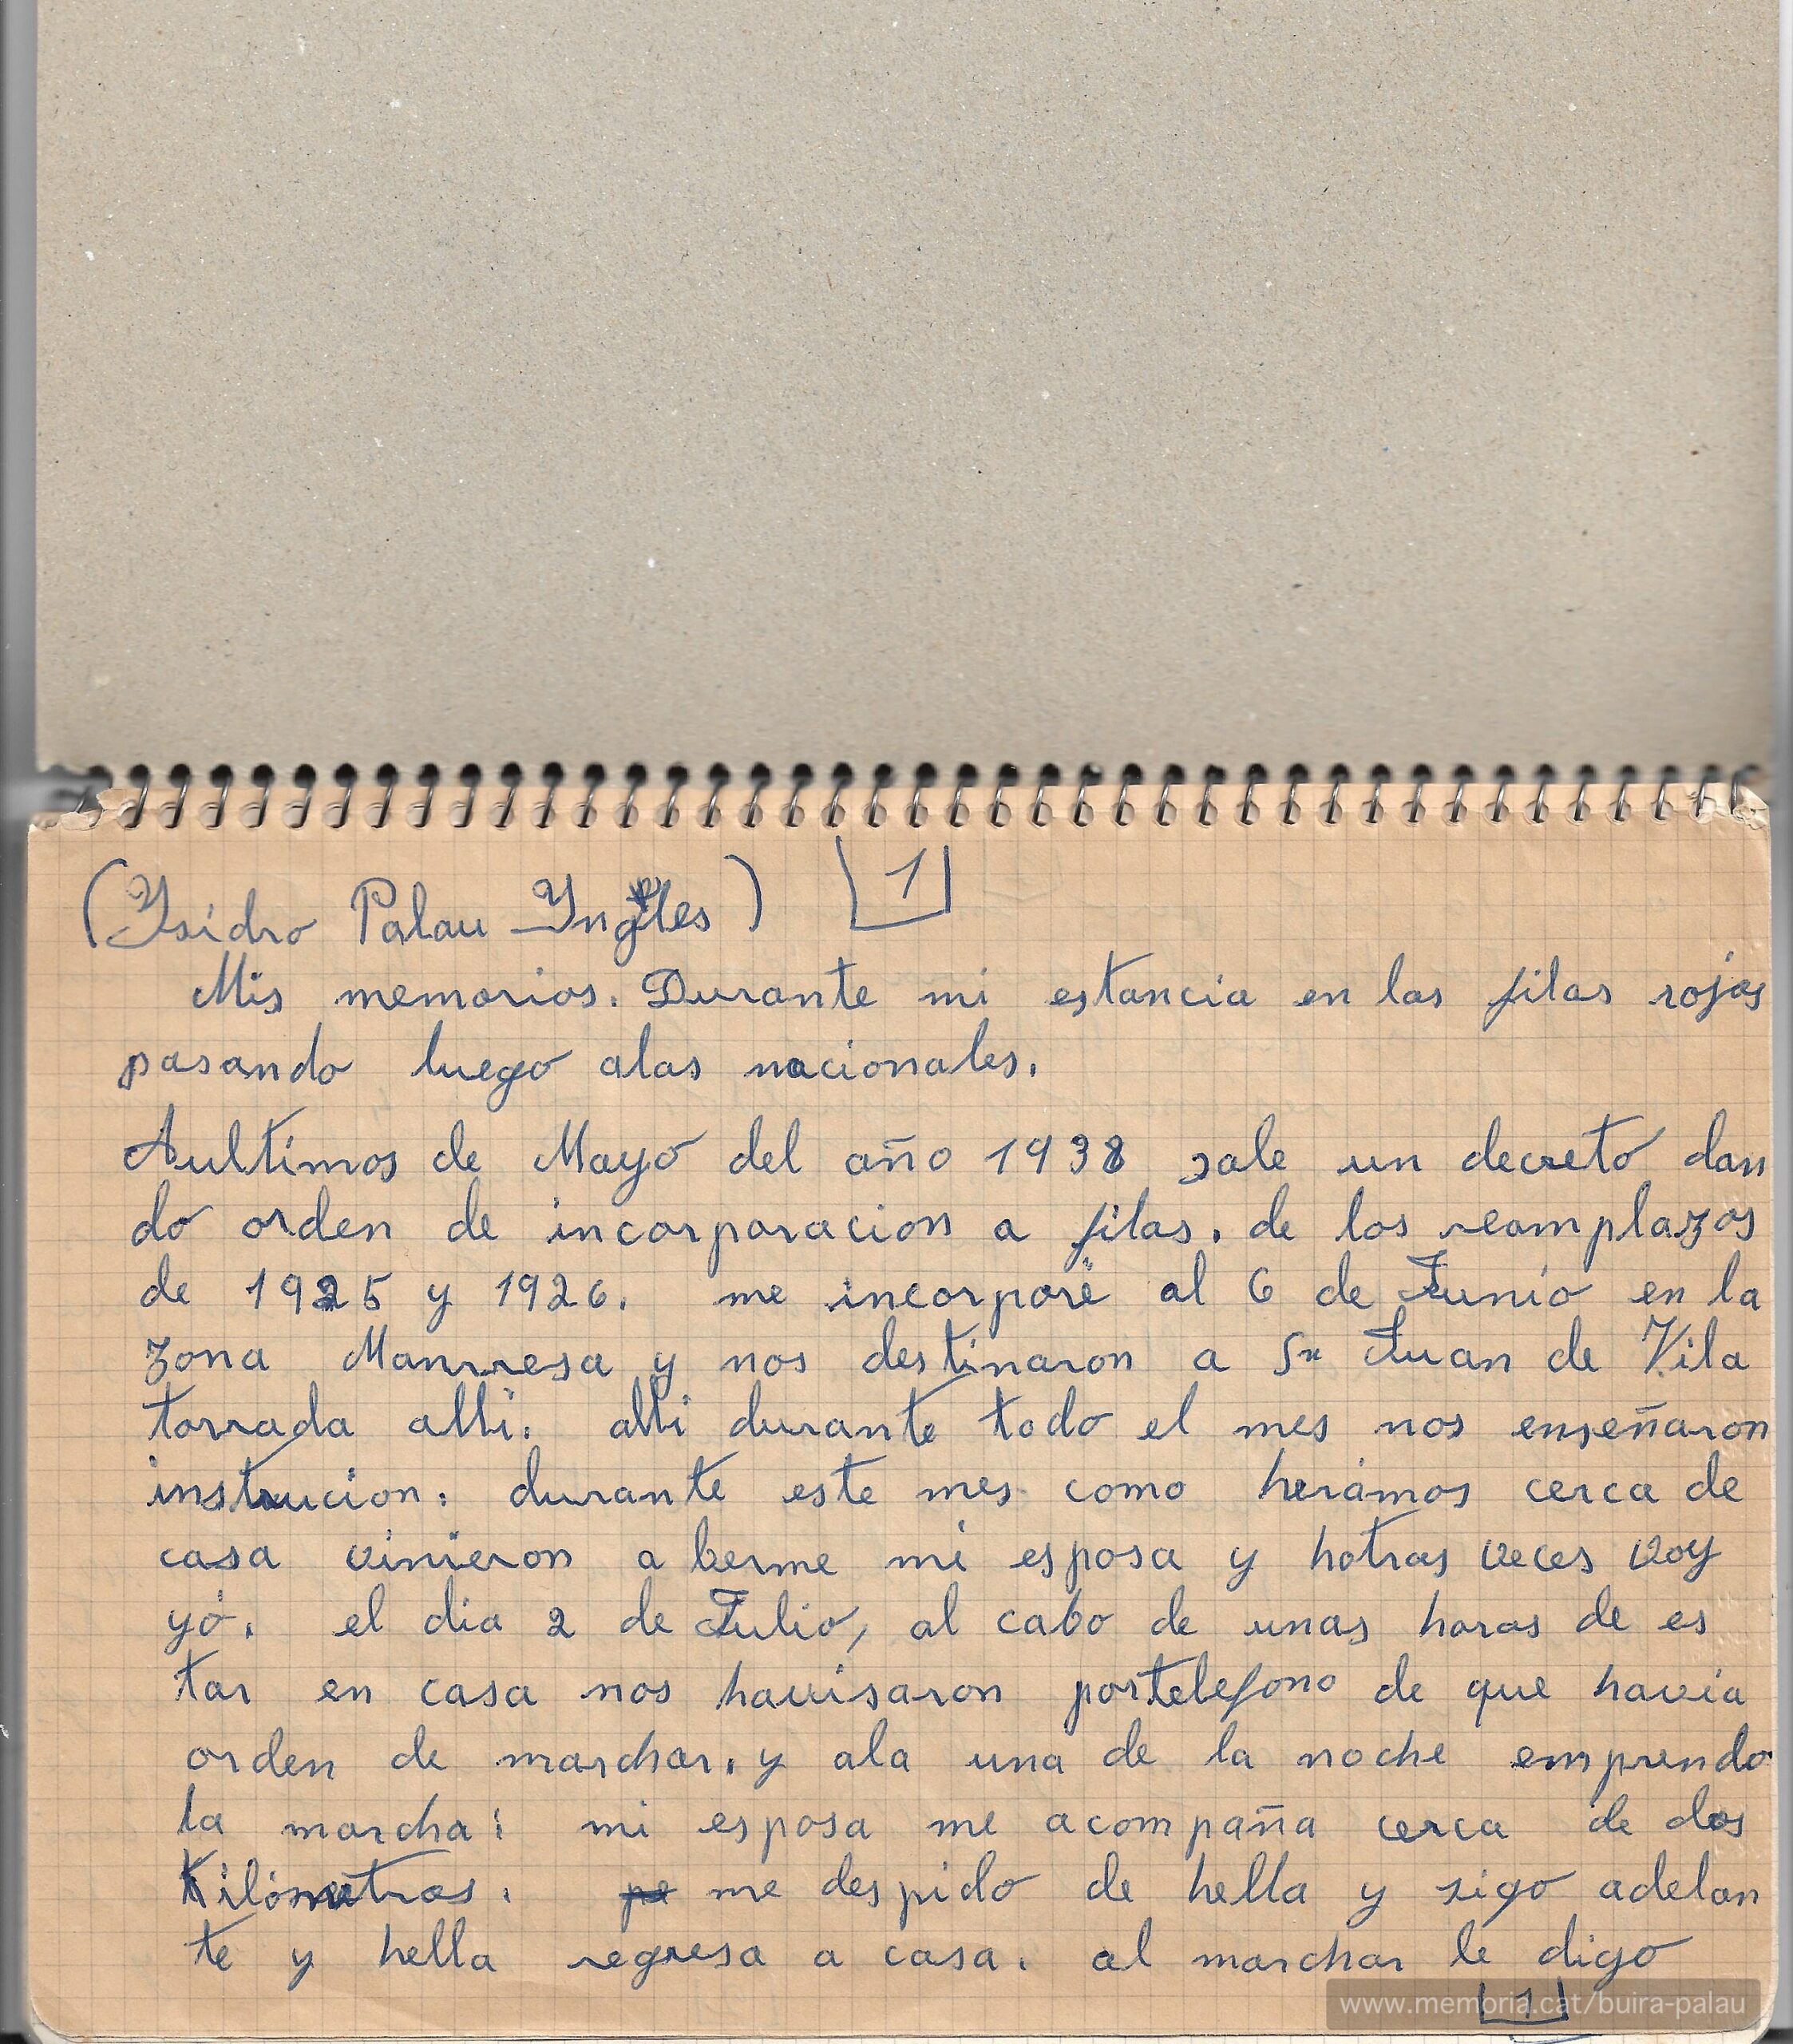 (Ysidro Palau Yngles) 1
Mis memorias. Durante mi estancia en las filas rojas
pasando luego alas nacionales.
Aultimos de Mayo del año 1938 sale un decreto dan
do orden de incorporacion a filas. de los reamplazos
de 1925 y 1926. me incorporé al 6 de Junio en la
zona Manrresa y nos destinaron a Sn Juan de Vila
torrada alli. alli durante todo el mes nos enseñaron
instrucion. durante este mes como herámos cerca de
casa vinieron a berme mi esposa y hotras veces voy
yó. el dia 2 de Julio, al cabo de unas horas de es
tar en casa nos havisaron portelefono de que havia
orden de marchar. y ala una de la noche emprendo
la marcha: mi esposa me acompaña cerca de dos
Kilómetros. pe me despido de hella y sigo adelan
te y hella regresa a casa. al marchar le digo
1
www.memoria.cat/buira-palau